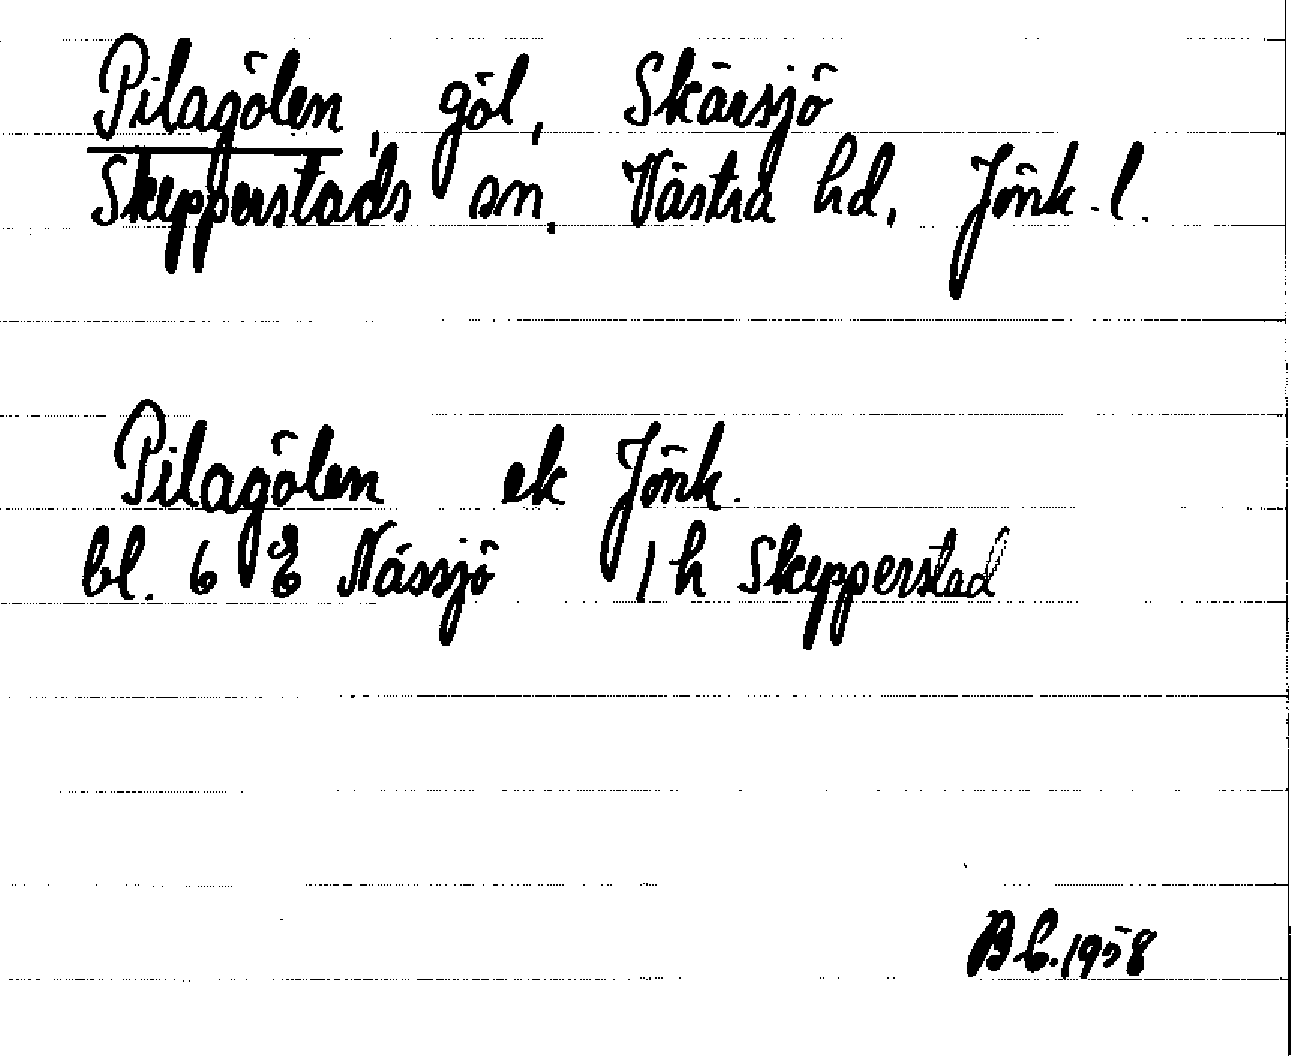 Pilagölen, göl, Skärsjö
Skepperstads sn. Västra hd, Jönk. l.
Pilagölen ek Jönk.
bl. 6 E Nässjö 1 h Skepperstad
1958